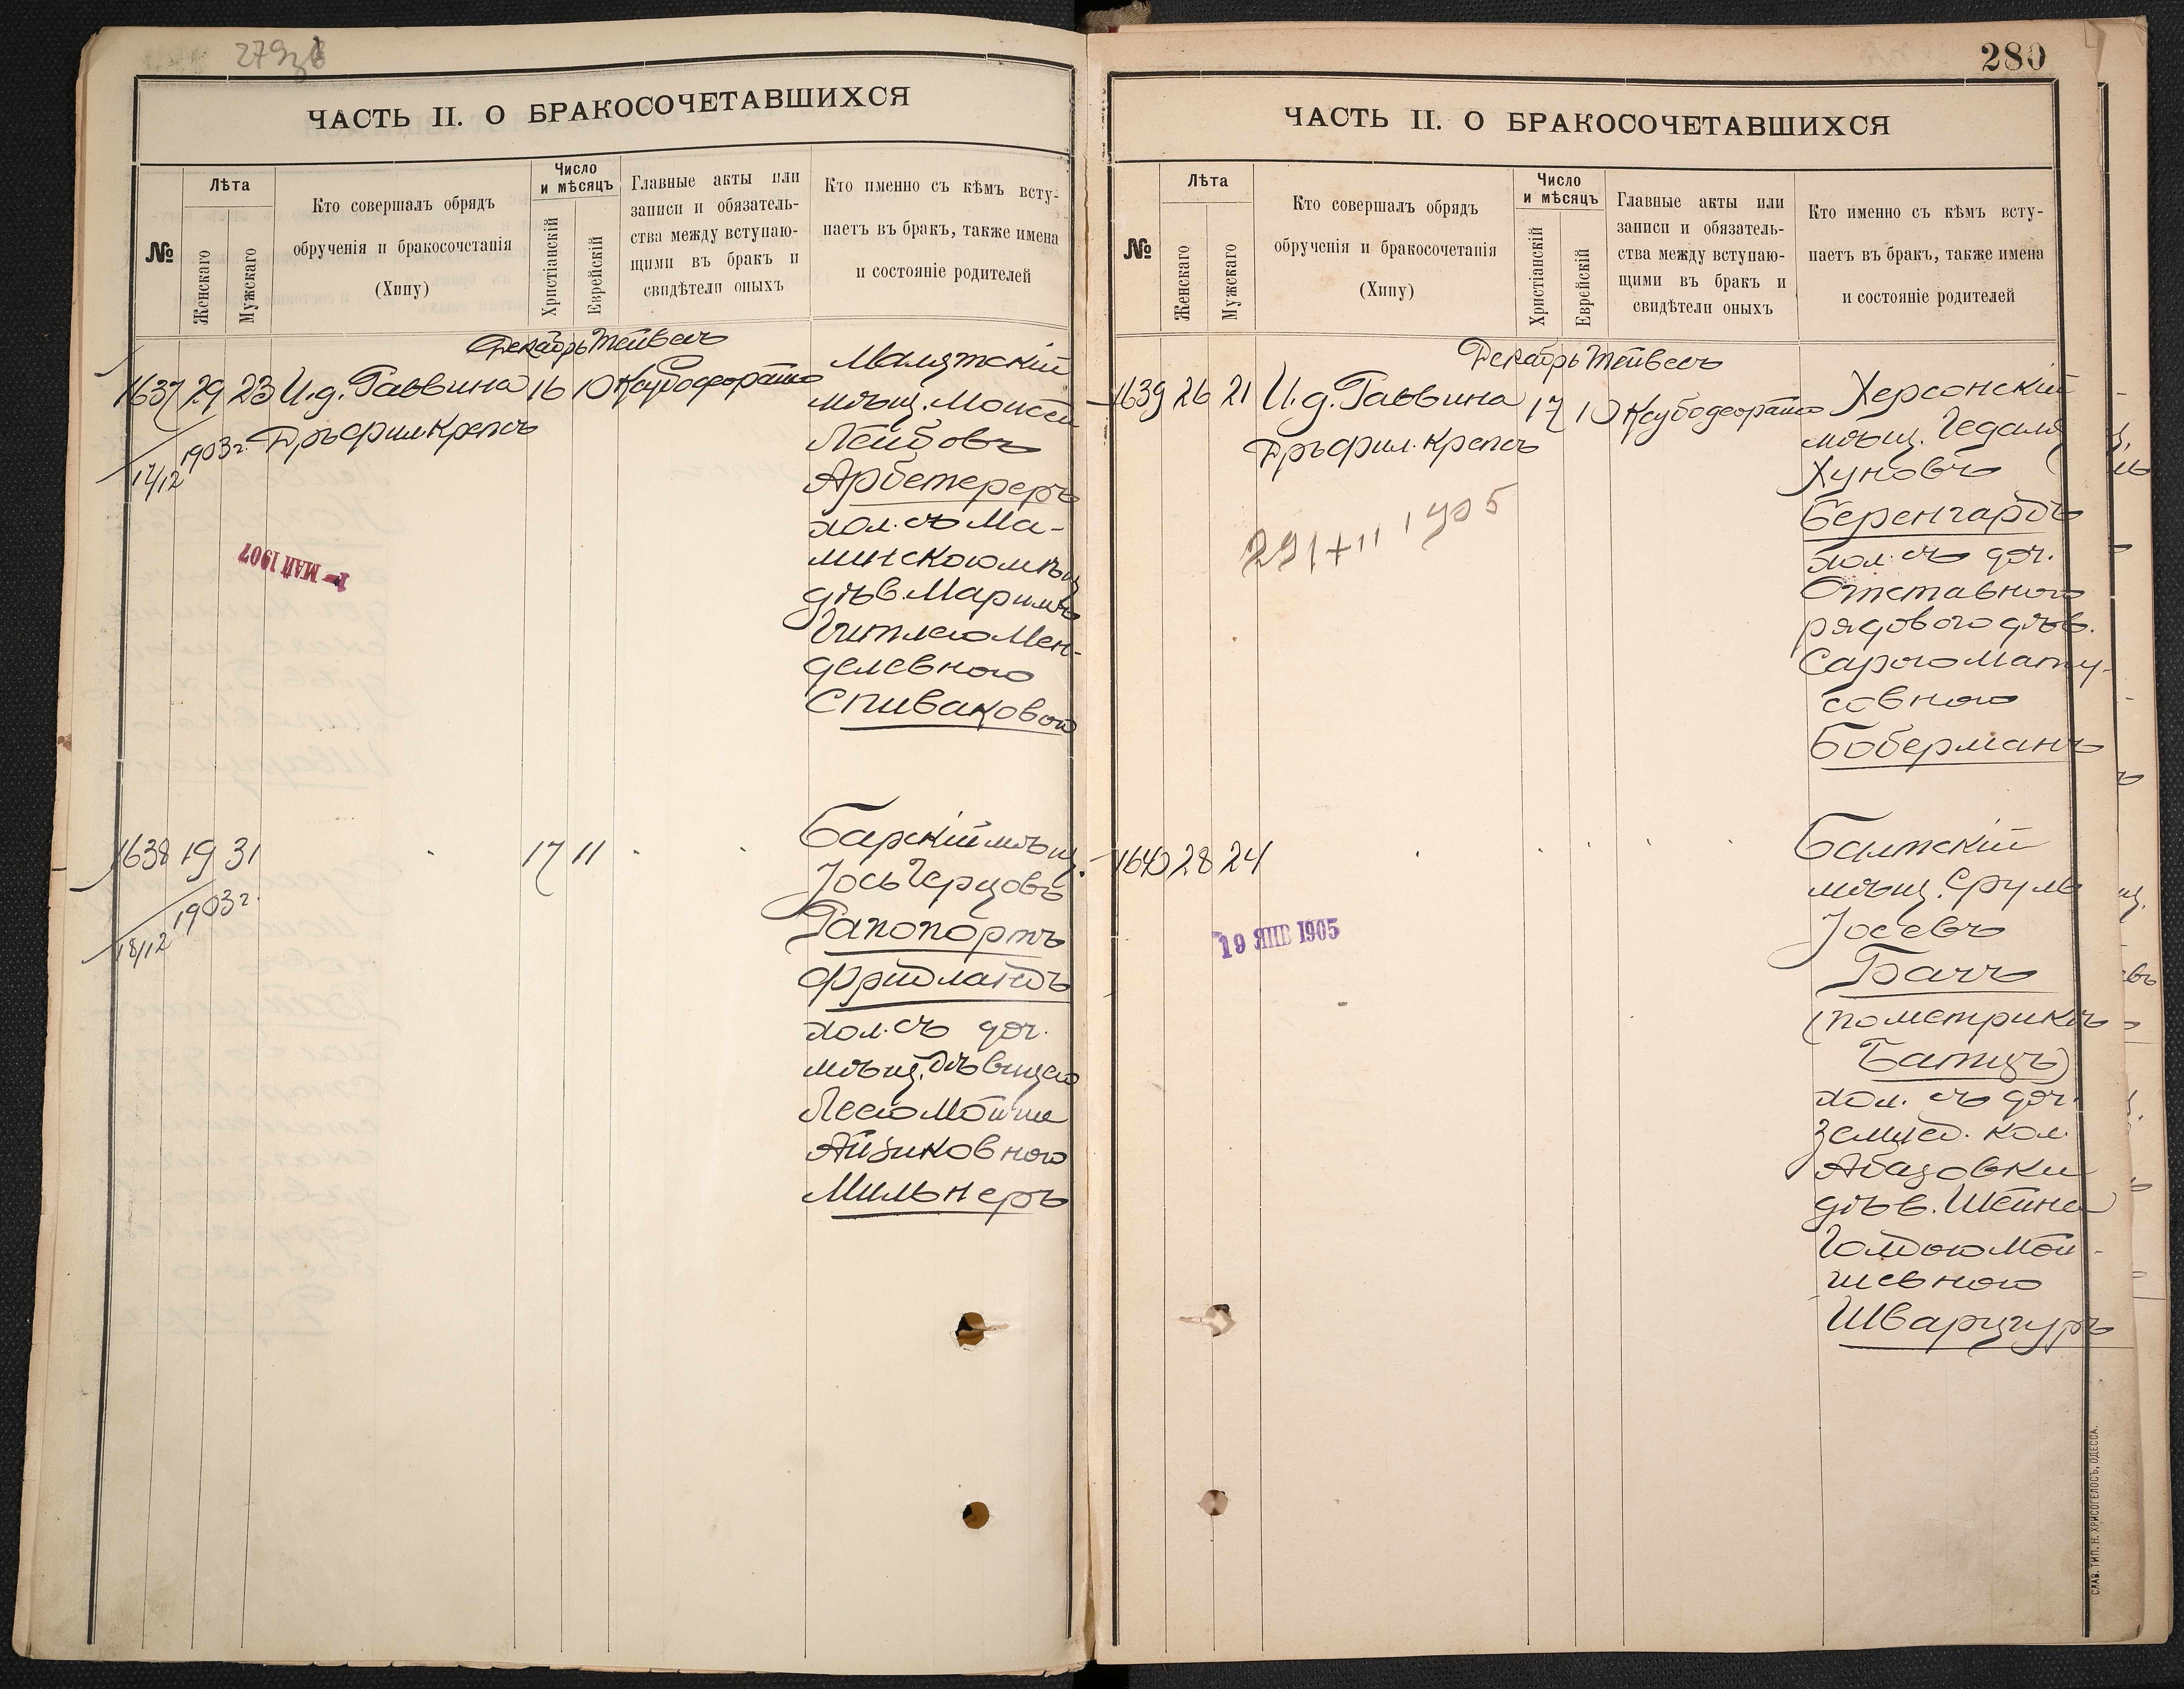 279
ЧАСТЬ II. О БРАКОСОЧЕТАВШИХСЯ
№
Лѣта
Женскаго
Мужскаго
Кто совершалъ обрядъ
обрученія и бракосочетанія
(Хипу)
Число
и мѣсяцъ
Христіанскій
Еврейскій
Главные акты или
записи и обязатель-
ства между вступаю-
щими въ бракъ и
свидѣтели оныхъ
Кто именно съ кѣмъ всту-
паетъ въ бракъ, также имена
и состояніе родителей
Декабрь Тейвесъ
1637 29 23 И.д. Раввина 16 10
Дръ фил. Крепсъ
17/12 1903 г.
1 - МАЙ 1907
мѣщ. Моисей
Лейбовъ
Арбетереръ
хол. съ Ма-
минскою мѣщ
дѣв. Маримъ
Гитлею Мен-
делевною
Спиваковою
1638 19 31 17 11
18/12 1903 г.
Барскій мѣщ.
Јось Герцовъ
Рапопортъ
Фридландъ
хол. съ доч.
мѣщ. дѣвицею
Леею Мойше
Айзиковною
Мильнеръ
280
ЧАСТЬ II. О БРАКОСОЧЕТАВШИХСЯ
№
Лѣта
Женскаго
Мужскаго
Кто совершалъ обрядъ
обрученія и бракосочетанія
(Хипу)
Число
и мѣсяцъ
Христіанскій
Еврейскій
Главные акты или
записи и обязатель-
ства между вступаю-
щими въ бракъ и
свидѣтели оныхъ
Кто именно съ кѣмъ всту-
паетъ въ бракъ, также имена
и состояніе родителей
Декабрь Тейвесъ
1639 26 21 И.д. Раввина 17 10
Дръ фил. Крепсъ
1905
Херсонскій
мѣщ. Гедаля
Хуновъ
Беренгардъ
хол. съ доч.
Отставного
рядового дѣв.
Сарою Мату-
совною
Боберманъ
1640 28 24
19 ЯНВ 1905
Балтскій
мѣщ. Сруль
Јосевъ
Бачъ
(по метрикѣ
Батцъ)
хол. съ доч.
землед. кол.
Абазовки
дѣв. Шейна
Голдою Мой-
шевною
Шварцгуръ
СЛАВ. ТИП. Н. ХРИСОГЕЛОСЪ, ОДЕССА.